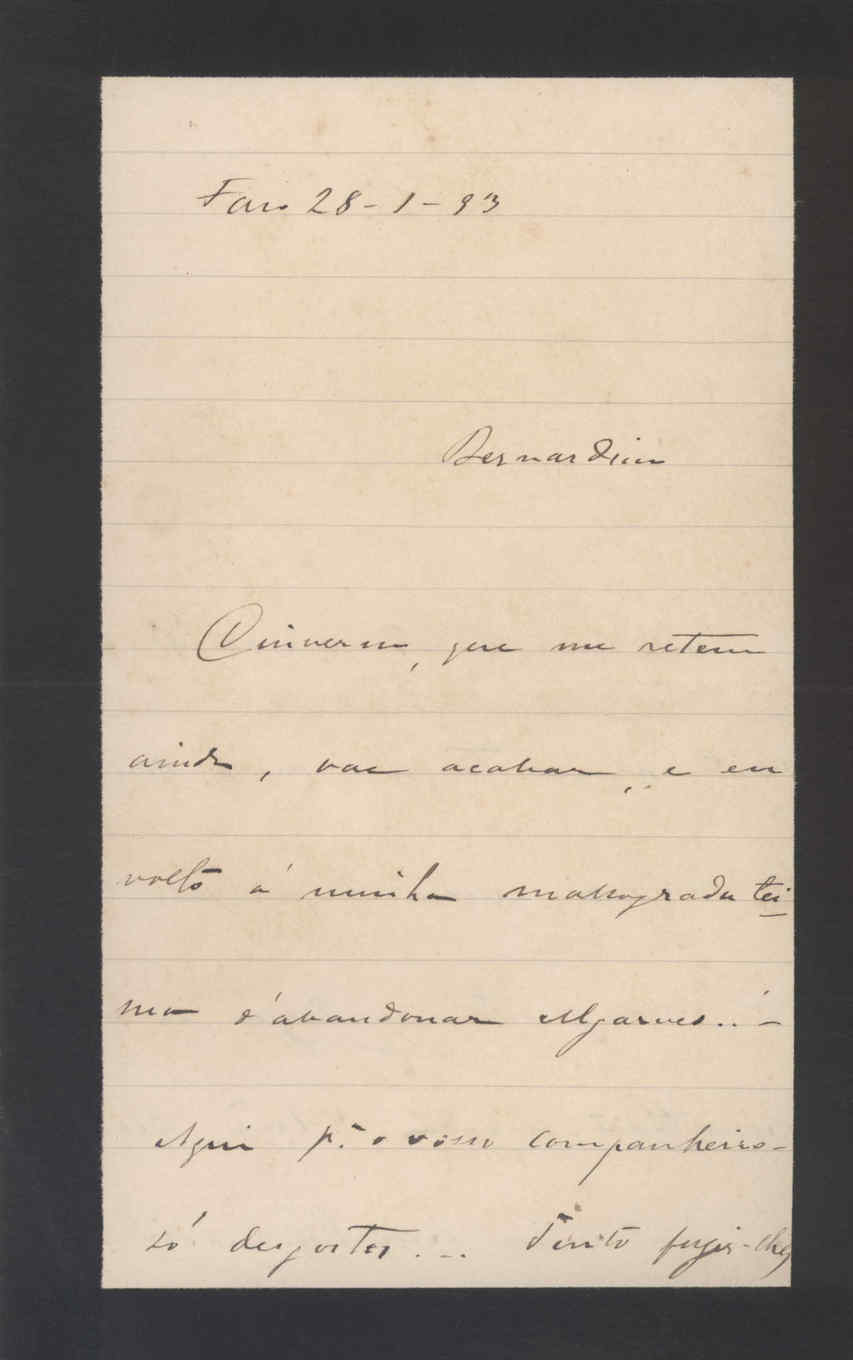 Faro 28-1-93
Bernardim
O inverno, que me retem
ainda, vae acabar, e eu
volto á minha mallograda tei
ma d'abandonar Algarves...-
Aqui p.ª o vosso companheiro-
só desgostos... Tento fugir-lhes